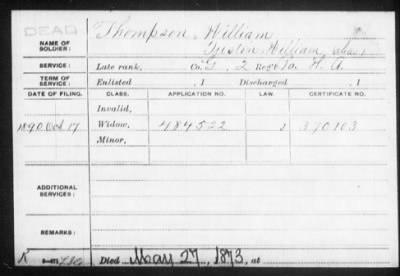 DEAD
NAME OF SOLDIER: Thompson William
William (alias)
SERVICE: Late rank, Co. G, 2 Reg't Pa. H. A.
TERM OF SERVICE: Enlisted , 1 Discharged , 1
DATE OF FILING. CLASS. APPLICATION NO. LAW. CERTIFICATE NO.
Invalid,
1890 Oct 17 Widow, 484522 370103
Minor,
ADDITIONAL SERVICES:
REMARKS:
K
Died May 27, 1873, at